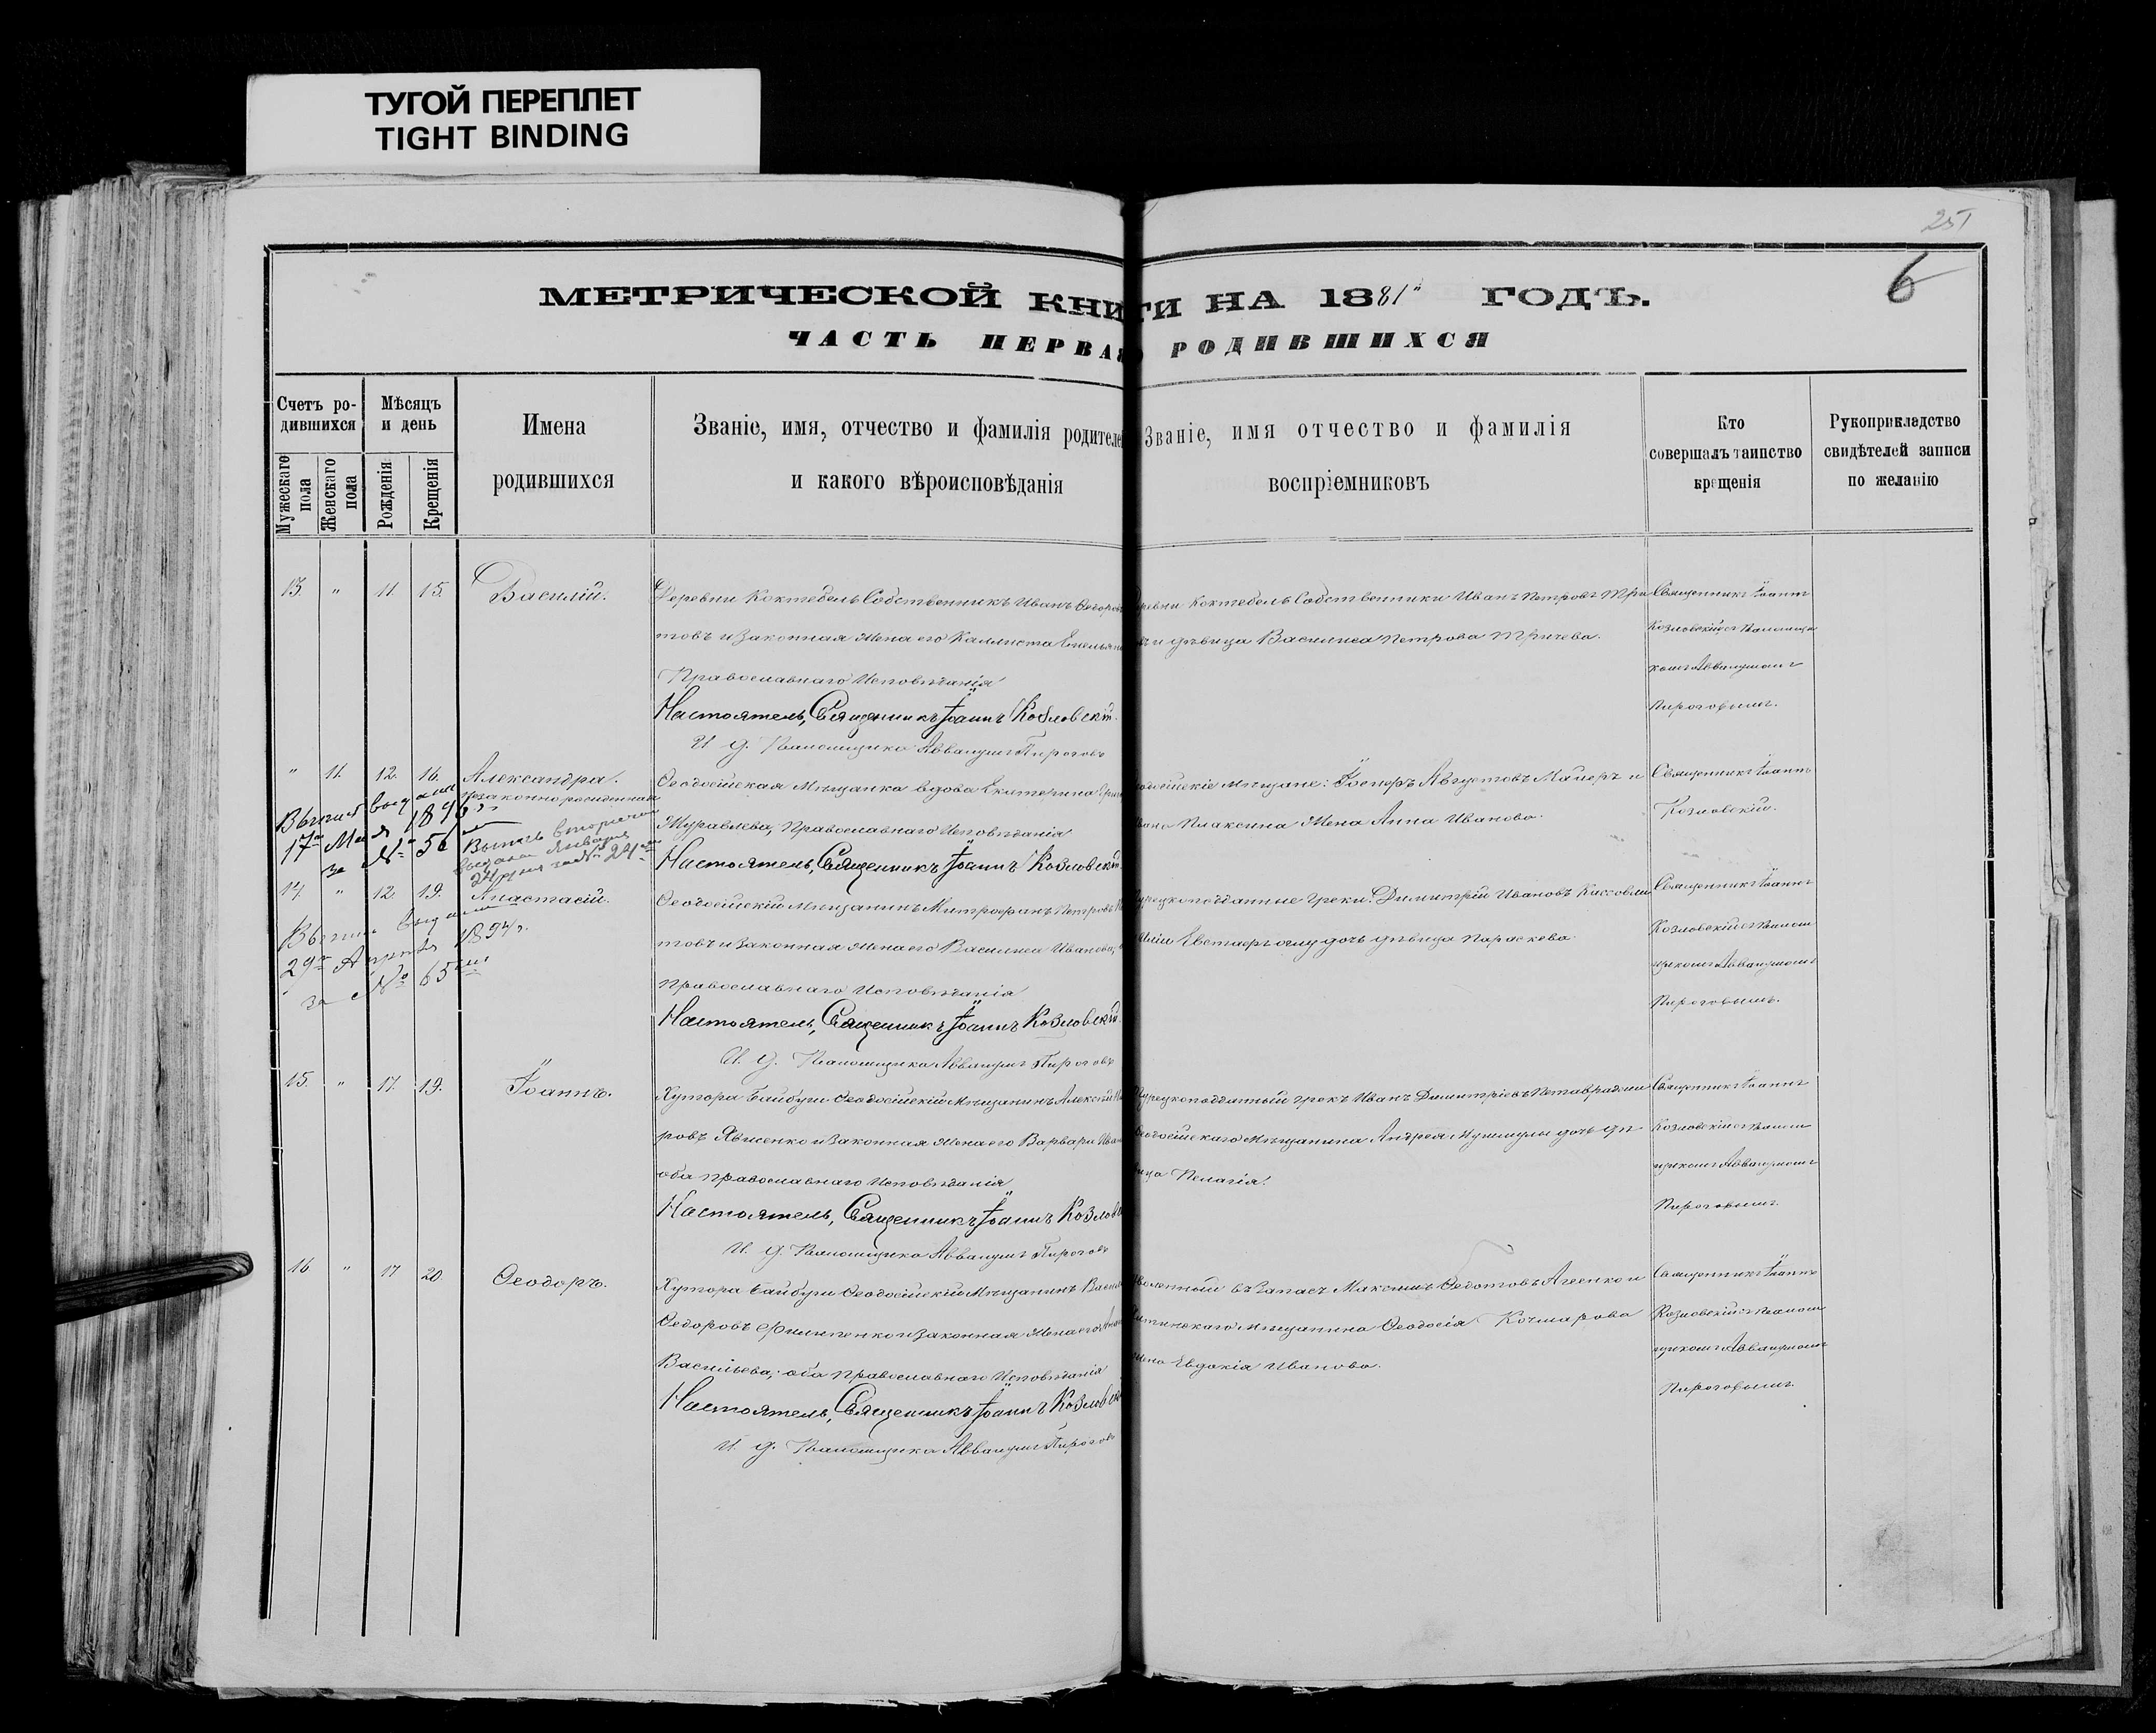 ТУГОЙ ПЕРЕПЛЕТ
TIGHT BINDING
251
6
МЕТРИЧЕСКОЙ КНИГИ НА 1881 ГОДЪ.
ЧАСТЬ ПЕРВАЯ О РОДИВШИХСЯ
Счетъ ро-
дившихся
Мужескаго пола
Женскаго пола
Мѣсяцъ
и день
Рожденія
Крещенія
Имена
родившихся
Званіе, имя, отчество и фамилія родителей
и какого вѣроисповѣданія
Званіе, имя отчество и фамилія
воспріемниковъ
Кто
совершалъ таинство
крещенія
Рукоприкладство
свидѣтелей записи
по желанію
13. " 11. 15. Василій.
Деревни Коктебель Собственникъ Иванъ Ѳедоровъ
товъ и законная жена его Каллиста
Православнаго Исповѣданія
Настоятель, Священникъ Іоаннъ Козловскій.
И. д. Псаломщика Аввакумъ Пироговъ
Деревни Коктебель Собственники Иванъ Петровъ
и дѣвица Василиса Петрова Тричева.
Священникъ Іоаннъ
Козловскій съ Псаломщи
комъ Аввакумомъ
Пироговымъ.
" 11. 12. 16. Александра.
незаконнорожденная
Выпись выдана
17го Мая 1896 г.
за № 56
Выпись вторично
выдана Января
24 дня за № 24
Ѳеодосійская Мѣщанка вдова Екатерина
Журавлева, Православнаго Исповѣданія
Настоятель, Священникъ Іоаннъ Козловскій.
Ѳеодосійскіе мѣщане: Іосифъ Августовъ Майеръ и
Плаксина жена Анна Иванова.
Священникъ Іоаннъ
Козловскій.
14. " 12. 19. Анастасій.
Выпись выдана
29го Апрѣля 1897 г.
за № 65
Ѳеодосійскій мѣщанинъ Митрофанъ Петровъ
товъ и законная жена его Василиса Иванова,
православнаго Исповѣданія
Настоятель, Священникъ Іоаннъ Козловскій.
И. д. Псаломщика Аввакумъ Пироговъ
Турецкоподданные греки: Димитрій Ивановъ
дочь дѣвица Параскева.
Священникъ Іоаннъ
Козловскій съ Псалом
щикомъ Аввакумомъ
Пироговымъ.
15. " 17. 19. Іоаннъ.
Хутора Байбуги Ѳеодосійскій Мѣщанинъ Алексѣй
ровъ Явженко и законная жена его Варвара
оба православнаго Исповѣданія
Настоятель, Священникъ Іоаннъ Козловскій
И. д. Псаломщика Аввакумъ Пироговъ
Турецкоподданный грекъ Иванъ Димитріевъ
Ѳеодосійскаго Мѣщанина Андрея Мушмулы дочь дѣ
вица Пелагія.
Священникъ Іоаннъ
Козловскій съ Псалом
щикомъ Аввакумомъ
Пироговымъ.
16. " 17 20. Ѳеодоръ.
Хутора Байбуги Ѳеодосійскій Мѣщанинъ
Ѳедоровъ Филипенко и законная жена его
Васильева; оба Православнаго Исповѣданія
Настоятель, Священникъ Іоаннъ Козловскій
И. д. Псаломщика Аввакумъ Пироговъ
Уволенный въ Запасъ Максимъ Ѳедотовъ Агеенко и
мѣщанина Ѳеодосія Кочмарова
жена Евдокія Иванова.
Священникъ Іоаннъ
Козловскій съ Псалом
щикомъ Аввакумомъ
Пироговымъ.